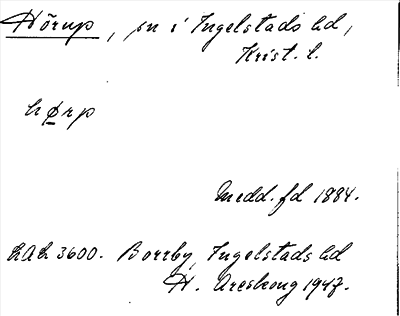 Hörup, sn i Ingelstads hd,
Krist. l.
hørp
Medd. fd 1884.
LAL 3600. Borrby, Ingelstads hd
H. Areskoug 1947.